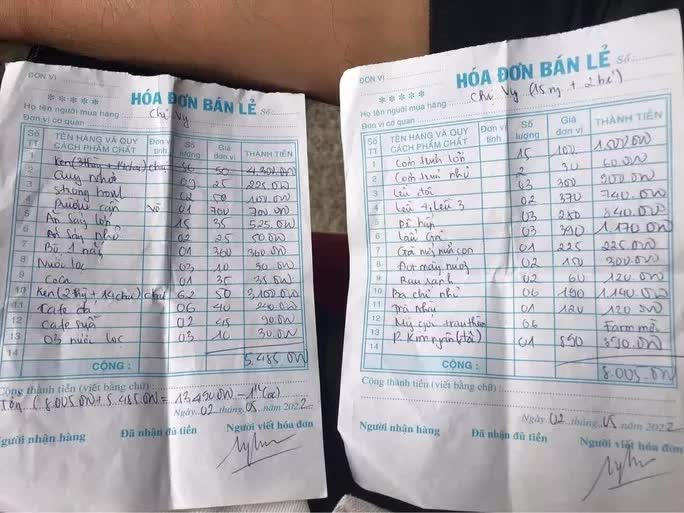 HÓA ĐƠN BÁN LẺ Số:
ĐƠN VỊ
Họ tên người mua hàng Chị Vy
Đơn vị cơ quan
Số TT TÊN HÀNG VÀ QUY CÁCH PHẨM CHẤT Đơn vị tính Số lượng Giá đơn vị THÀNH TIỀN
1 Ken 50
2 25 225.000
3 02 50 100.000
Rượu cần 01 700 700.000
5 Ăn sáng lớn 15 35 525.000
6 Ăn sáng nhỏ 02 25 50.000
7 Bò 1 nắng 01 360 360.000
8 Nước lọc 03 10 30.000
9 01 35 35.000
10 Ken 62 50 3,100.000
11 Cafe đá 06 40 240.000
12 Cafe sữa 02 45 90.000
13 03 nước lọc 03 10 30.000
14
CỘNG : 5.485.000
Cộng thành tiền (viết bằng chữ)
(8.005.000 + 5.485.000 = 13.490.000
Ngày 02 tháng 05 năm 2022
Người nhận hàng Đã nhận đủ tiền Người viết hóa đơn
HÓA ĐƠN BÁN LẺ Số:
ĐƠN VỊ
Họ tên người mua hàng Chị Vy (15 + 2 bé)
Đơn vị cơ quan
Số TT TÊN HÀNG VÀ QUY CÁCH PHẨM CHẤT Đơn vị tính Số lượng Giá đơn vị THÀNH TIỀN
1 Cơm trưa lớn 15 100 1.500.000
2 Cơm trưa nhỏ 2 30 60.000
3 Lều đôi 03 300 900.000
4 Lều 4, lều 3 02 370 740.000
5 03 280 840.000
6 Lẩu gà 03 390 1.170.000
7 Gà 01 225 225.000
8 02 150 300.000
9 Rau 02 60 120.000
10 06 190 1.140.000
11 01 120 120.000
12 Mỳ gói 06 Farm mời
13 01 890 890.000
14
CỘNG : 8.005.000
Cộng thành tiền (viết bằng chữ):
Ngày 02 tháng 05 năm 2022
Người nhận hàng Đã nhận đủ tiền Người viết hóa đơn